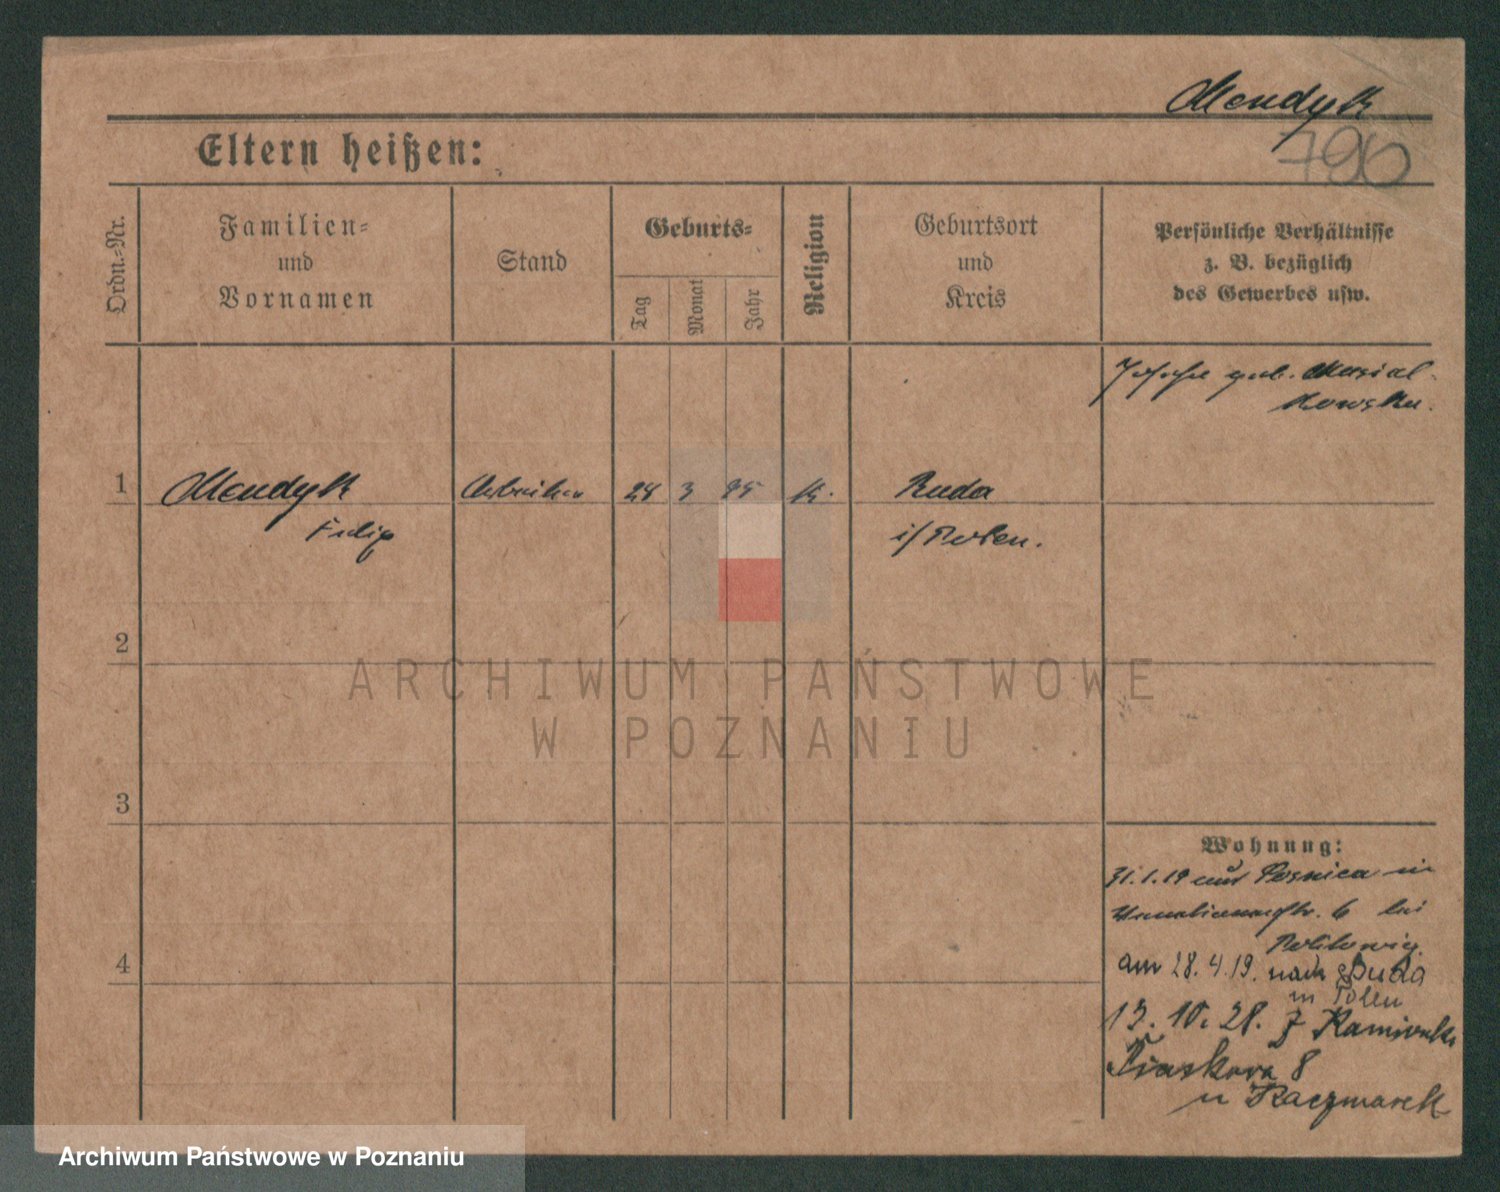 Mendyk
796
Eltern heißen:
Ordn.-Nr.
Familien-
und
Vornamen
Stand
Geburts-
Tag
Monat
Jahr
Religion
Geburtsort
und
Kreis
Persönliche Verhältnisse
z. B. bezüglich
des Gewerbes usw.
geb. Musial-
kowska.
1
Mendyk
Arbeiter
24
3
95
K.
Ruda
Filip
i/ Polen.
2
3
Wohnung:
31.1.19 aus Posnica in
6 bei
4
am 28.4.19. nach Ruda
in Polen
13. 10. 28. z
Piaskowa 8
u Kaczmarek
ARCHIWUM PAŃSTWOWE
W POZNANIU
Archiwum Państwowe w Poznaniu